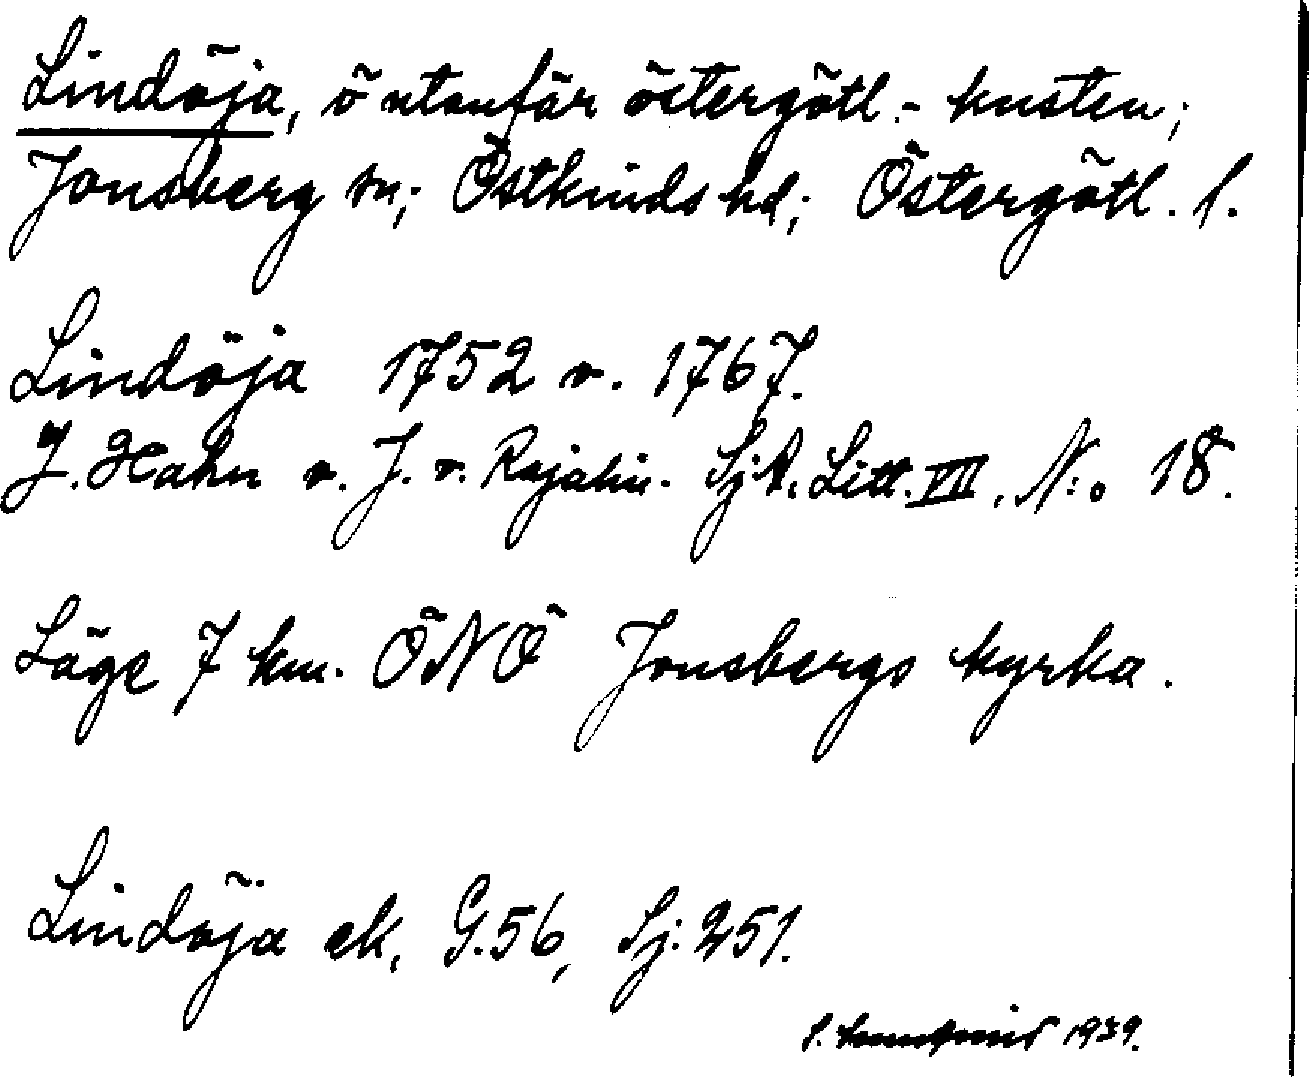 Lindöja, ö utanför östergötl.-kusten;
Jonsberg sn; Östkinds hd; Östergötl. l.
Lindöja 1752 o. 1767.
J. Hahn o. J. v. Rajalin. SjK. Litt. VII, N:o 18.
Läge 7 km. ÖNÖ Jonsbergs kyrka.
Lindöja ek, G.56, Sj.251.
1939.